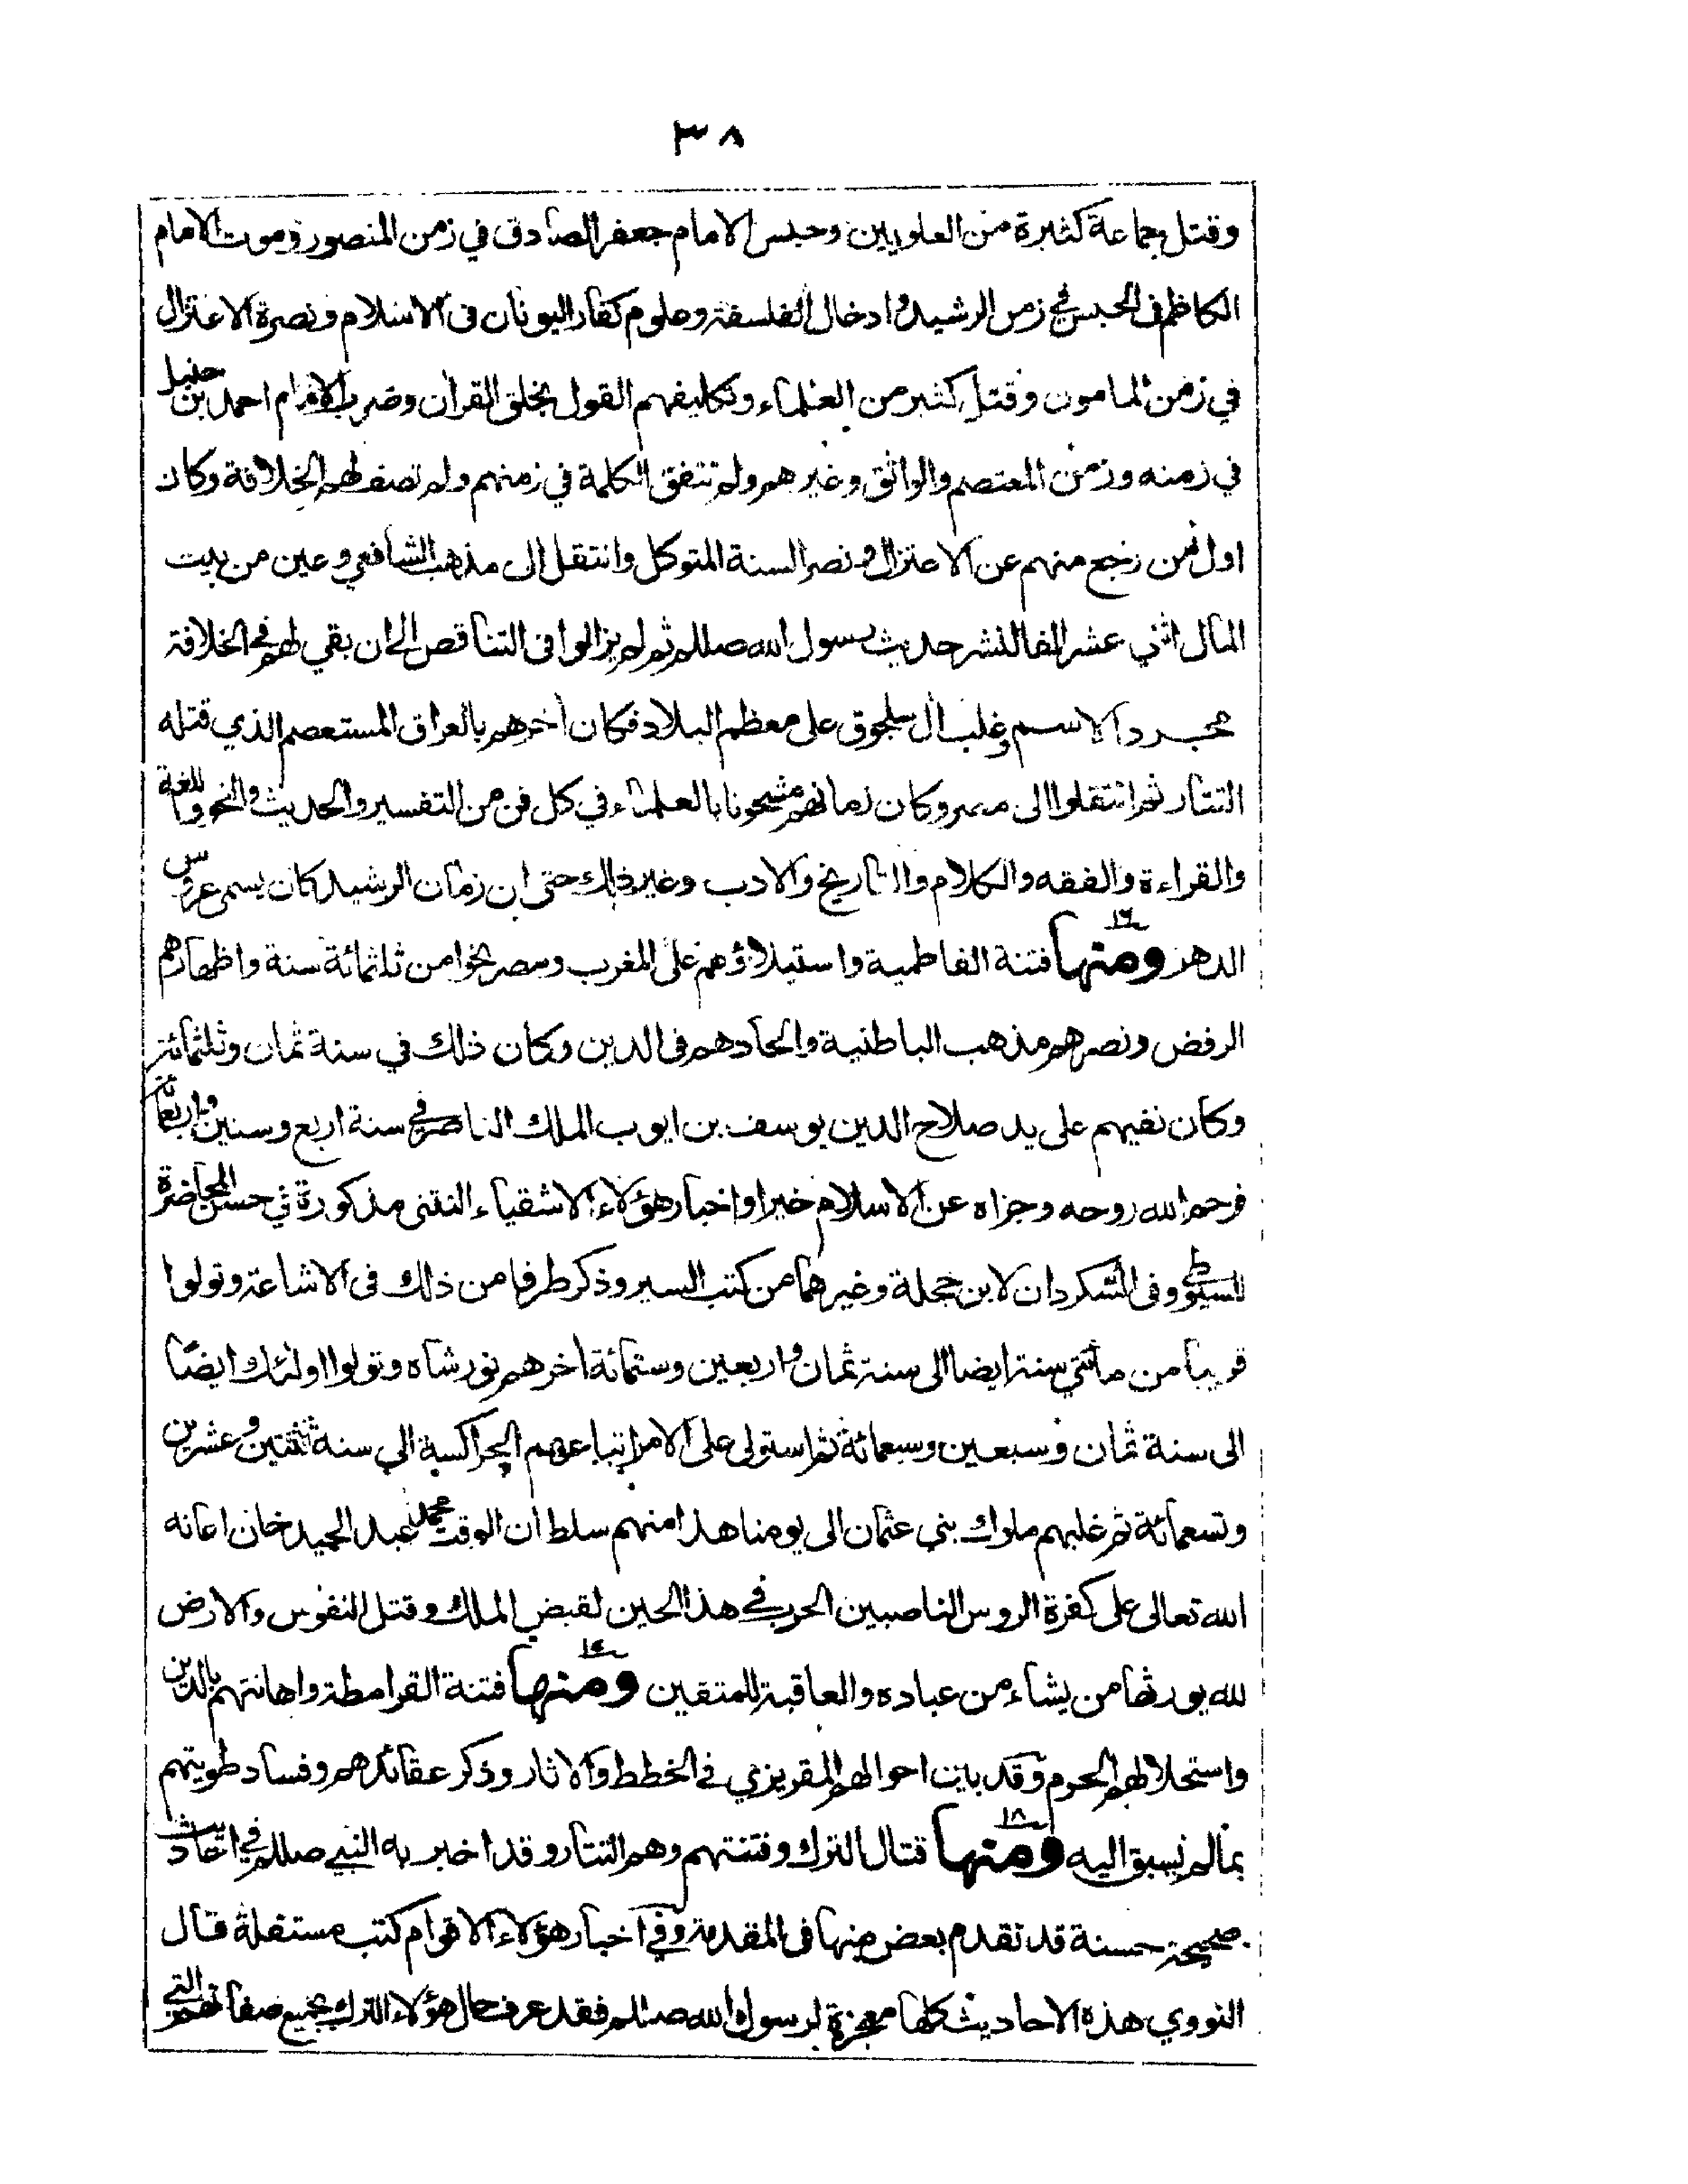 ٣٨
وقتل جماعة كثيرة من العلويين وحبس الامام جعفر الصادق في زمن المنصور وموت الامام
الكاظم في الحبس في زمن الرشيد وادخال الفلسفة وعلوم كفار اليونان فى الاسلام ونصرة الاعتزال
في زمن المامون وقتل كثير من العلماء وتكليفهم القول بخلق القران وضرب الامام احمد بن حنبل
في زمنه وزمن المعتصم والواثق وغيرهم ولم تتفق الكلمة في زمنهم ولم تصف لهم الخلافة وكان
اول من رجع منهم عن الاعتزال ونصر السنة المتوكل وانتقل الى مذهب الشافعي وعين من بيت
المال اثني عشر الفا لنشر حديث رسول الله صللم ثم لم يزالوا فى التناقص الى ان بقي لهم في الخلافة
مجرد الاسم وغلب ال سلجوق على معظم البلاد فكان اخرهم بالعراق المستعصم الذي قتله
التتار ثم انتقلوا الى مصر وكان زمانهم مشحونا بالعلماء في كل فن من التفسير والحديث والنحو واللغة
والقراءة والفقه والكلام والتاريخ والادب وغير ذلك حتى ان زمان الرشيد كان يسمى عروس
الدهر ومنها ١٦ فتنة الفاطمية واستيلاؤهم على المغرب ومصر نحوا من ثلثمائة سنة واظهارهم
الرفض ونصرهم مذهب الباطنية والحادهم فى الدين وكان ذلك في سنة ثمان وثلثمائة
وكان نفيهم على يد صلاح الدين يوسف بن ايوب الملك الناصر في سنة اربع وستين واربعمائة
فرحم الله روحه وجزاه عن الاسلام خيرا واخبار هؤلاء الاشقياء النتنى مذكورة في حسن المحاضرة
للسيوطي وفى السكردان لابن حجلة وغيرهما من كتب السير وذكر طرفا من ذلك فى الاشاعة وتولوا
قريبا من مائتي سنة ايضا الى سنة ثمان واربعين وستمائة اخرهم نورشاه وتولوا اولئك ايضا
الى سنة ثمان وسبعين وسبعمائة ثم استولى على الامر اتباعهم الجراكسة الي سنة ثنتين وعشرين
وتسعمائة ثم غلبهم ملوك بني عثمان الى يومنا هذا منهم سلطان الوقت محمد عبد الحميد خان اعانه
الله تعالى على كفرة الروس الناصبين الحرب في هذا الحين لقبض الملك وقتل النفوس والارض
لله يورثها من يشاء من عباده والعاقبة للمتقين ومنها ١٧ فتنة القرامطة واهانتهم بالدين
واستحلالهم الحرم وقد بين احوالهم المقريزي في الخطط والاثار وذكر عقائدهم وفساد طويتهم
بما لم يسبق اليه ومنها ١٨ قتال الترك وفتنتهم وهم التتار وقد اخبر به النبي صللم في احاديث
صحيحة حسنة قد تقدم بعض منها فى المقدمة وفي اخبار هؤلاء الاقوام كتب مستقلة قال
النووي هذه الاحاديث كلها معجزة لرسول الله صللم فقد عرف حال هؤلاء الترك بجميع صفاتهم التي